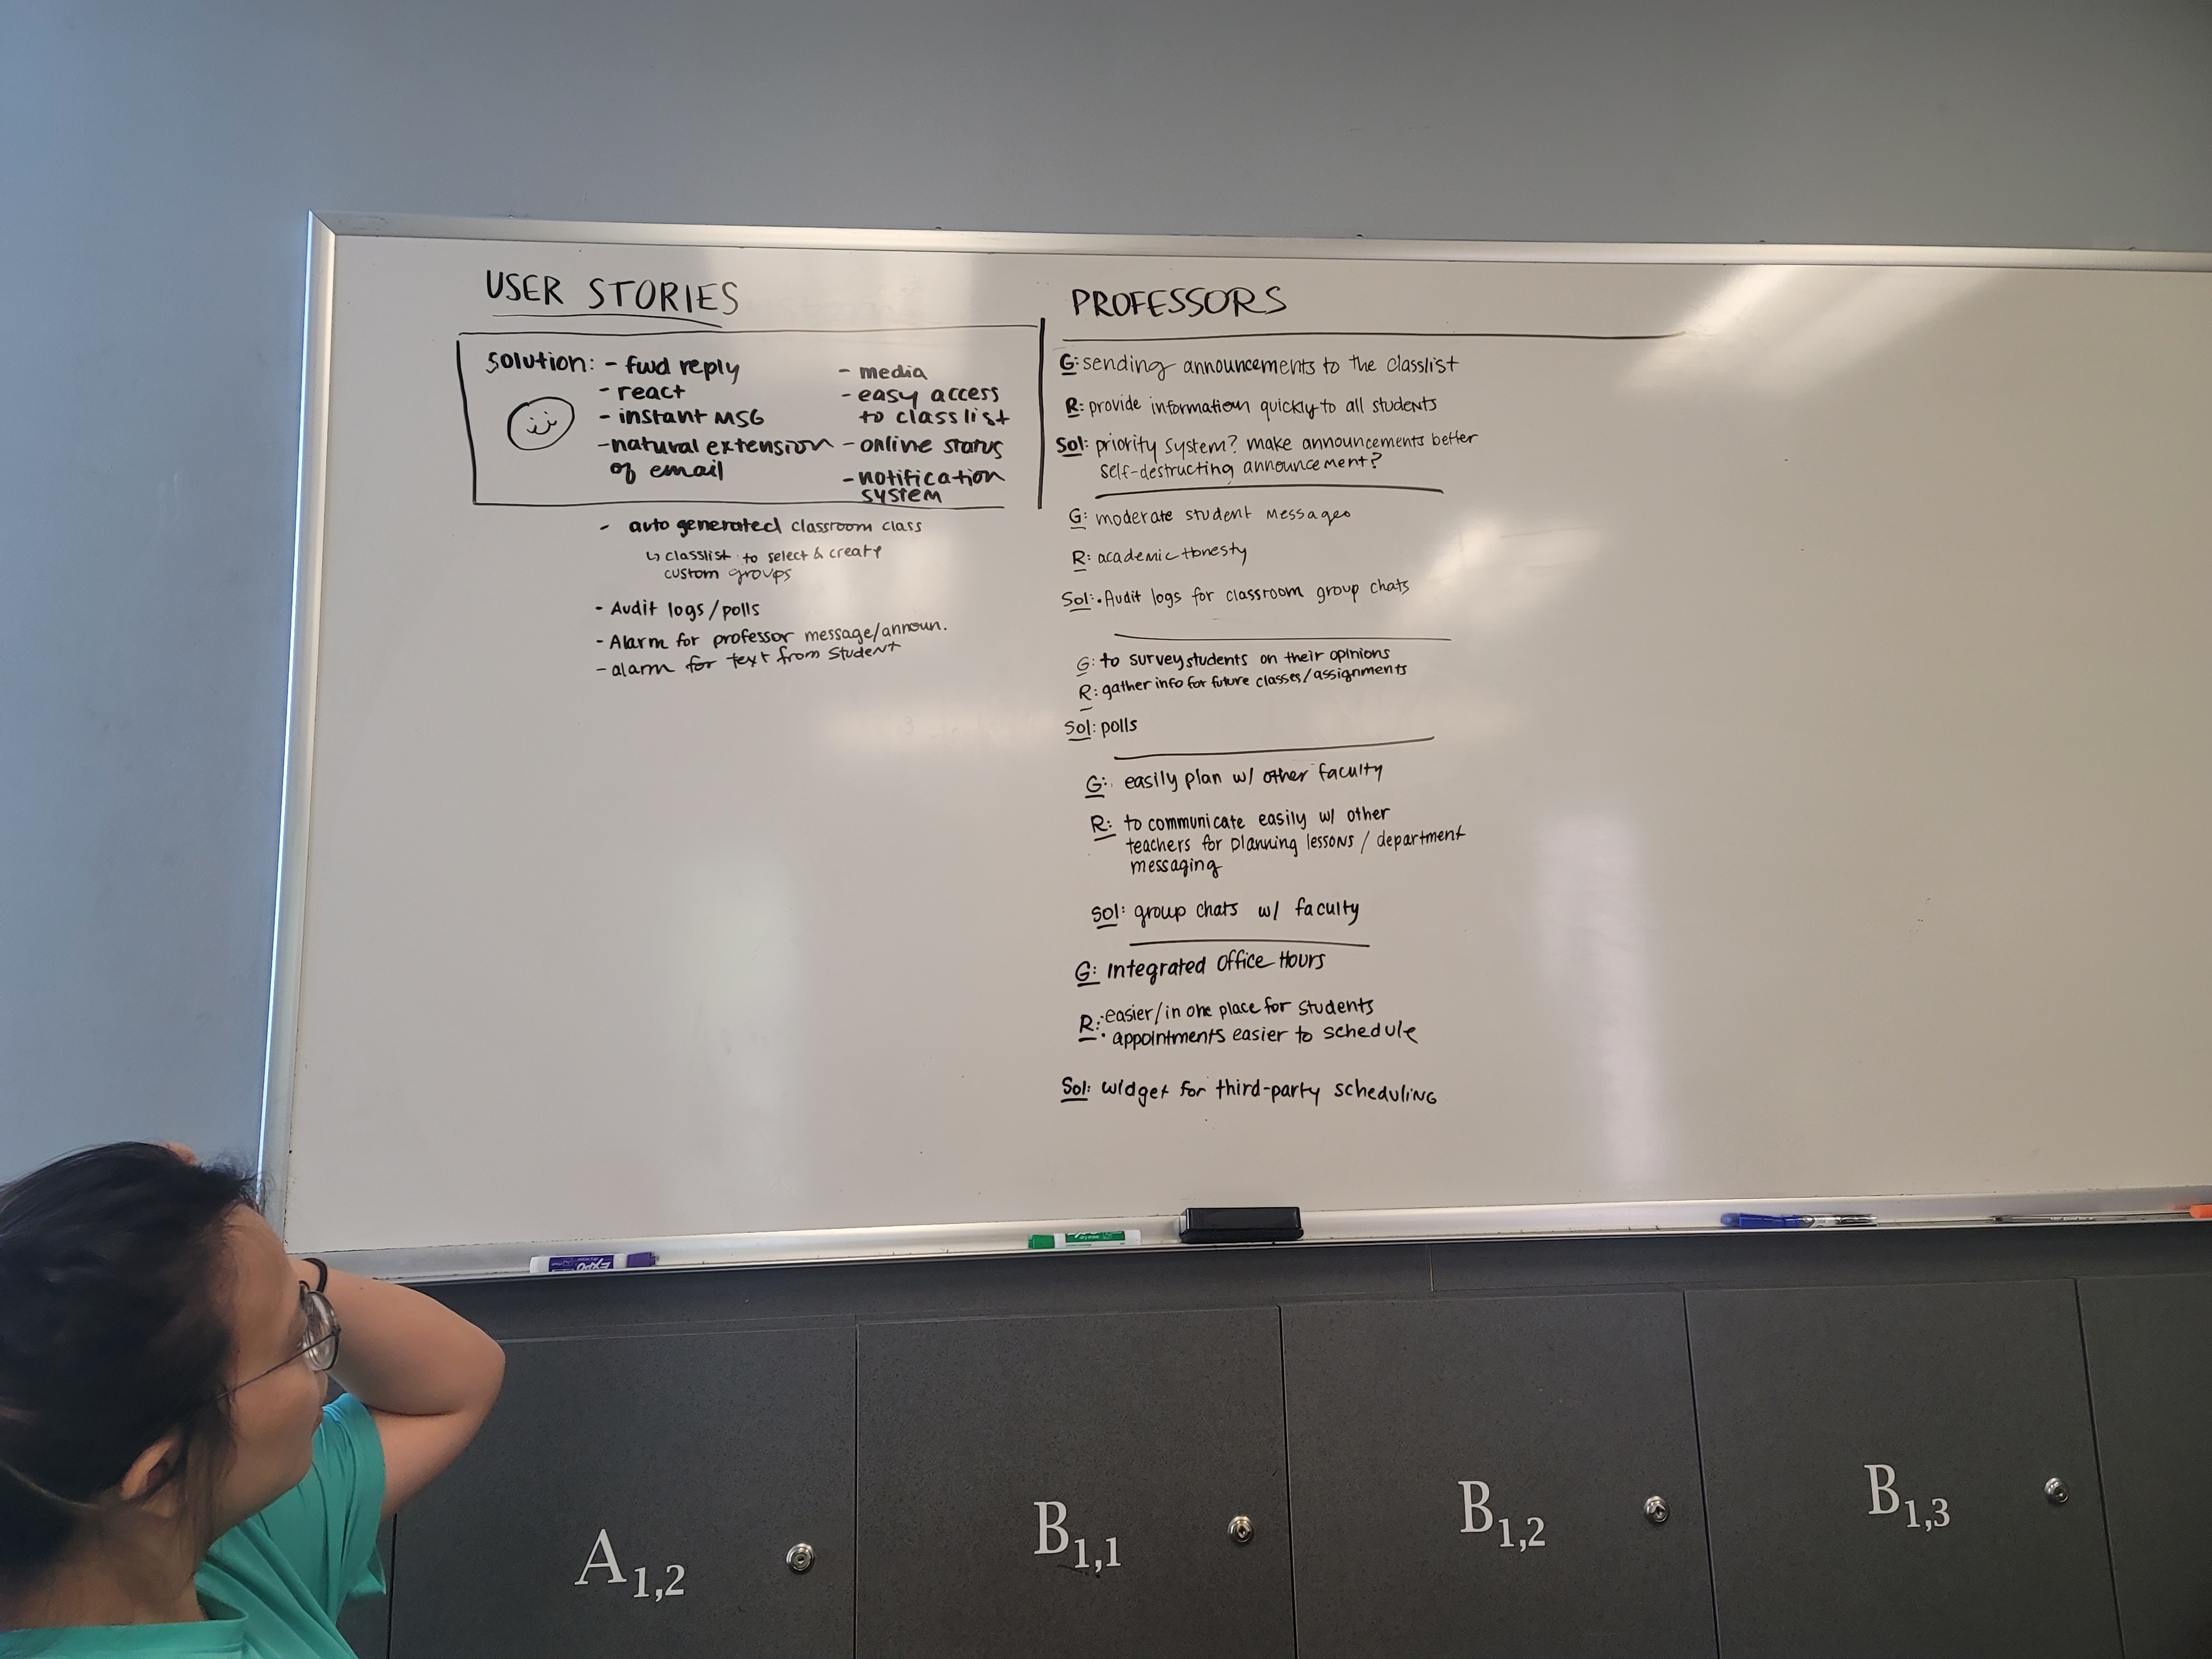 USER STORIES
Solution: - fwd reply
- react
- instant MSG
- natural extension
of email
- media
- easy access
to classlist
- online status
- notification
system
- auto generated classroom class
↳ classlist to select & create
custom groups
- Audit logs/polls
- Alarm for professor message/announ.
- alarm for text from student
PROFESSORS
G: sending announcements to the classlist
R: provide information quickly to all students
Sol: priority system? make announcements better
self-destructing announcement?
G: moderate student messages
R: academic Honesty
Sol: • Audit logs for classroom group chats
G: to survey students on their opinions
R: gather info for future classes/assignments
Sol: polls
G: easily plan w/ other faculty
R: to communicate easily w/ other
teachers for planning lessons / department
messaging
Sol: group chats w/ faculty
G: Integrated Office Hours
R: • easier/in one place for students
• appointments easier to schedule
Sol: widget for third-party scheduling
EXPO
A1,2
B1,1
B1,2
B1,3